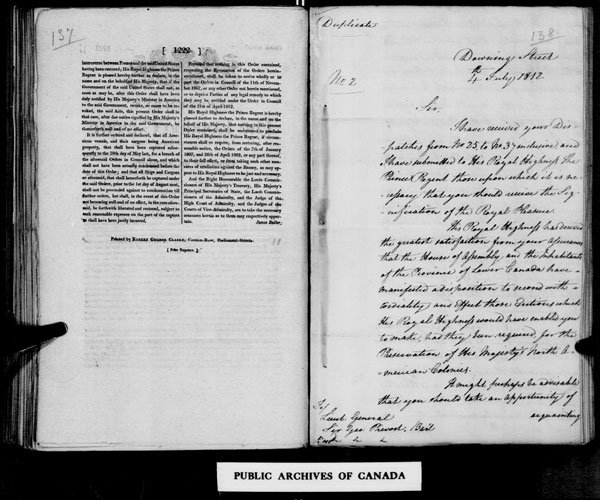 137
[ 1222 ]
intercourse between France and the said United States
having been restored, His Royal Highness the Prince
Regent is pleased hereby further to declare, in the
name and on the behalf of His Majesty, that if the
Government of the said United States shall not, as
soon as may be, after this Order shall have been
duly notified by His Majesty's Minister in America
to the said Government, revoke, or cause to be re-
voked, the said Acts, this present Order shall in
that case, after due notice signified by His Majesty's
Minister in America to the said Government, be
thenceforth null and of no effect.
It is further ordered and declared, that all Ame-
rican vessels, and their cargoes being American
property, that shall have been captured subse-
quently to the 20th day of May last, for a breach of
the aforesaid Orders in Council alone, and which
shall not have been actually condemned before the
date of this Order; and that all Ships and Cargoes
as aforesaid, that shall henceforth be captured under
the said Orders, prior to the 1st day of August next,
shall not be proceeded against to condemnation till
further orders, but shall, in the event of this Order
not becoming null and of no effect, in the case afore-
said, be forthwith liberated and restored, subject to
such reasonable expences on the part of the captors
as shall have been justly incurred.
Provided that nothing in this Order contained,
respecting the Revocation of the Orders herein-
mentioned, shall be taken to revive wholly or in
part the Orders in Council of the 11th of Novem-
ber 1807, or any other Order not herein mentioned,
or to deprive Parties of any legal remedy to which
they may be entitled under the Order in Council
of the 21st of April 1812.
His Royal Highness the Prince Regent is hereby
pleased further to declare, in the name and on the
behalf of His Majesty, that nothing in this present
Order contained, shall be understood to preclude
His Royal Highness the Prince Regent, if circum-
stances shall so require, from restoring, after rea-
sonable notice, the Orders of the 7th of January
1807, and 26th of April 1809, or any part thereof,
to their full effect, or from taking such other mea-
sures of retaliation against the enemy, as may ap-
pear to His Royal Highness to be just and necessary.
And the Right Honourable the Lords Commis-
sioners of His Majesty's Treasury, His Majesty's
Principal Secretaries of State, the Lords Commis-
sioners of the Admiralty, and the Judge of the
High Court of Admiralty, and the Judges of the
Courts of Vice-Admiralty, are to take the necessary
measures herein as to them may respectively apper-
tain. James Buller.
Printed by ROBERT GEORGE CLARKE, Cannon-Row, Parliament-Street.
[ Price Sixpence. ]
Duplicate
138
Downing Street
4th July 1812.
No. 2
Sir,
I have received your Dis-
patches from No. 25 to No. 37 inclusive, and
I have submitted to His Royal Highness the
Prince Regent those upon which it is ne-
cessary that you should receive the Sig-
nification of the Royal Pleasure.
His Royal Highness has derived
the greatest satisfaction from your assurances
that the House of Assembly, and the Inhabitants
of the Province of Lower Canada have
manifested a disposition to second with
cordiality and effect those Exertions which
His Royal Highness would have enabled you
to make, had they been required for the
Preservation of His Majesty's North A-
-merican Colonies.
It might perhaps be adviseable
that you should take an opportunity of
acquainting
Lieut. General
Sir Geo. Prevost, Bart
PUBLIC ARCHIVES OF CANADA